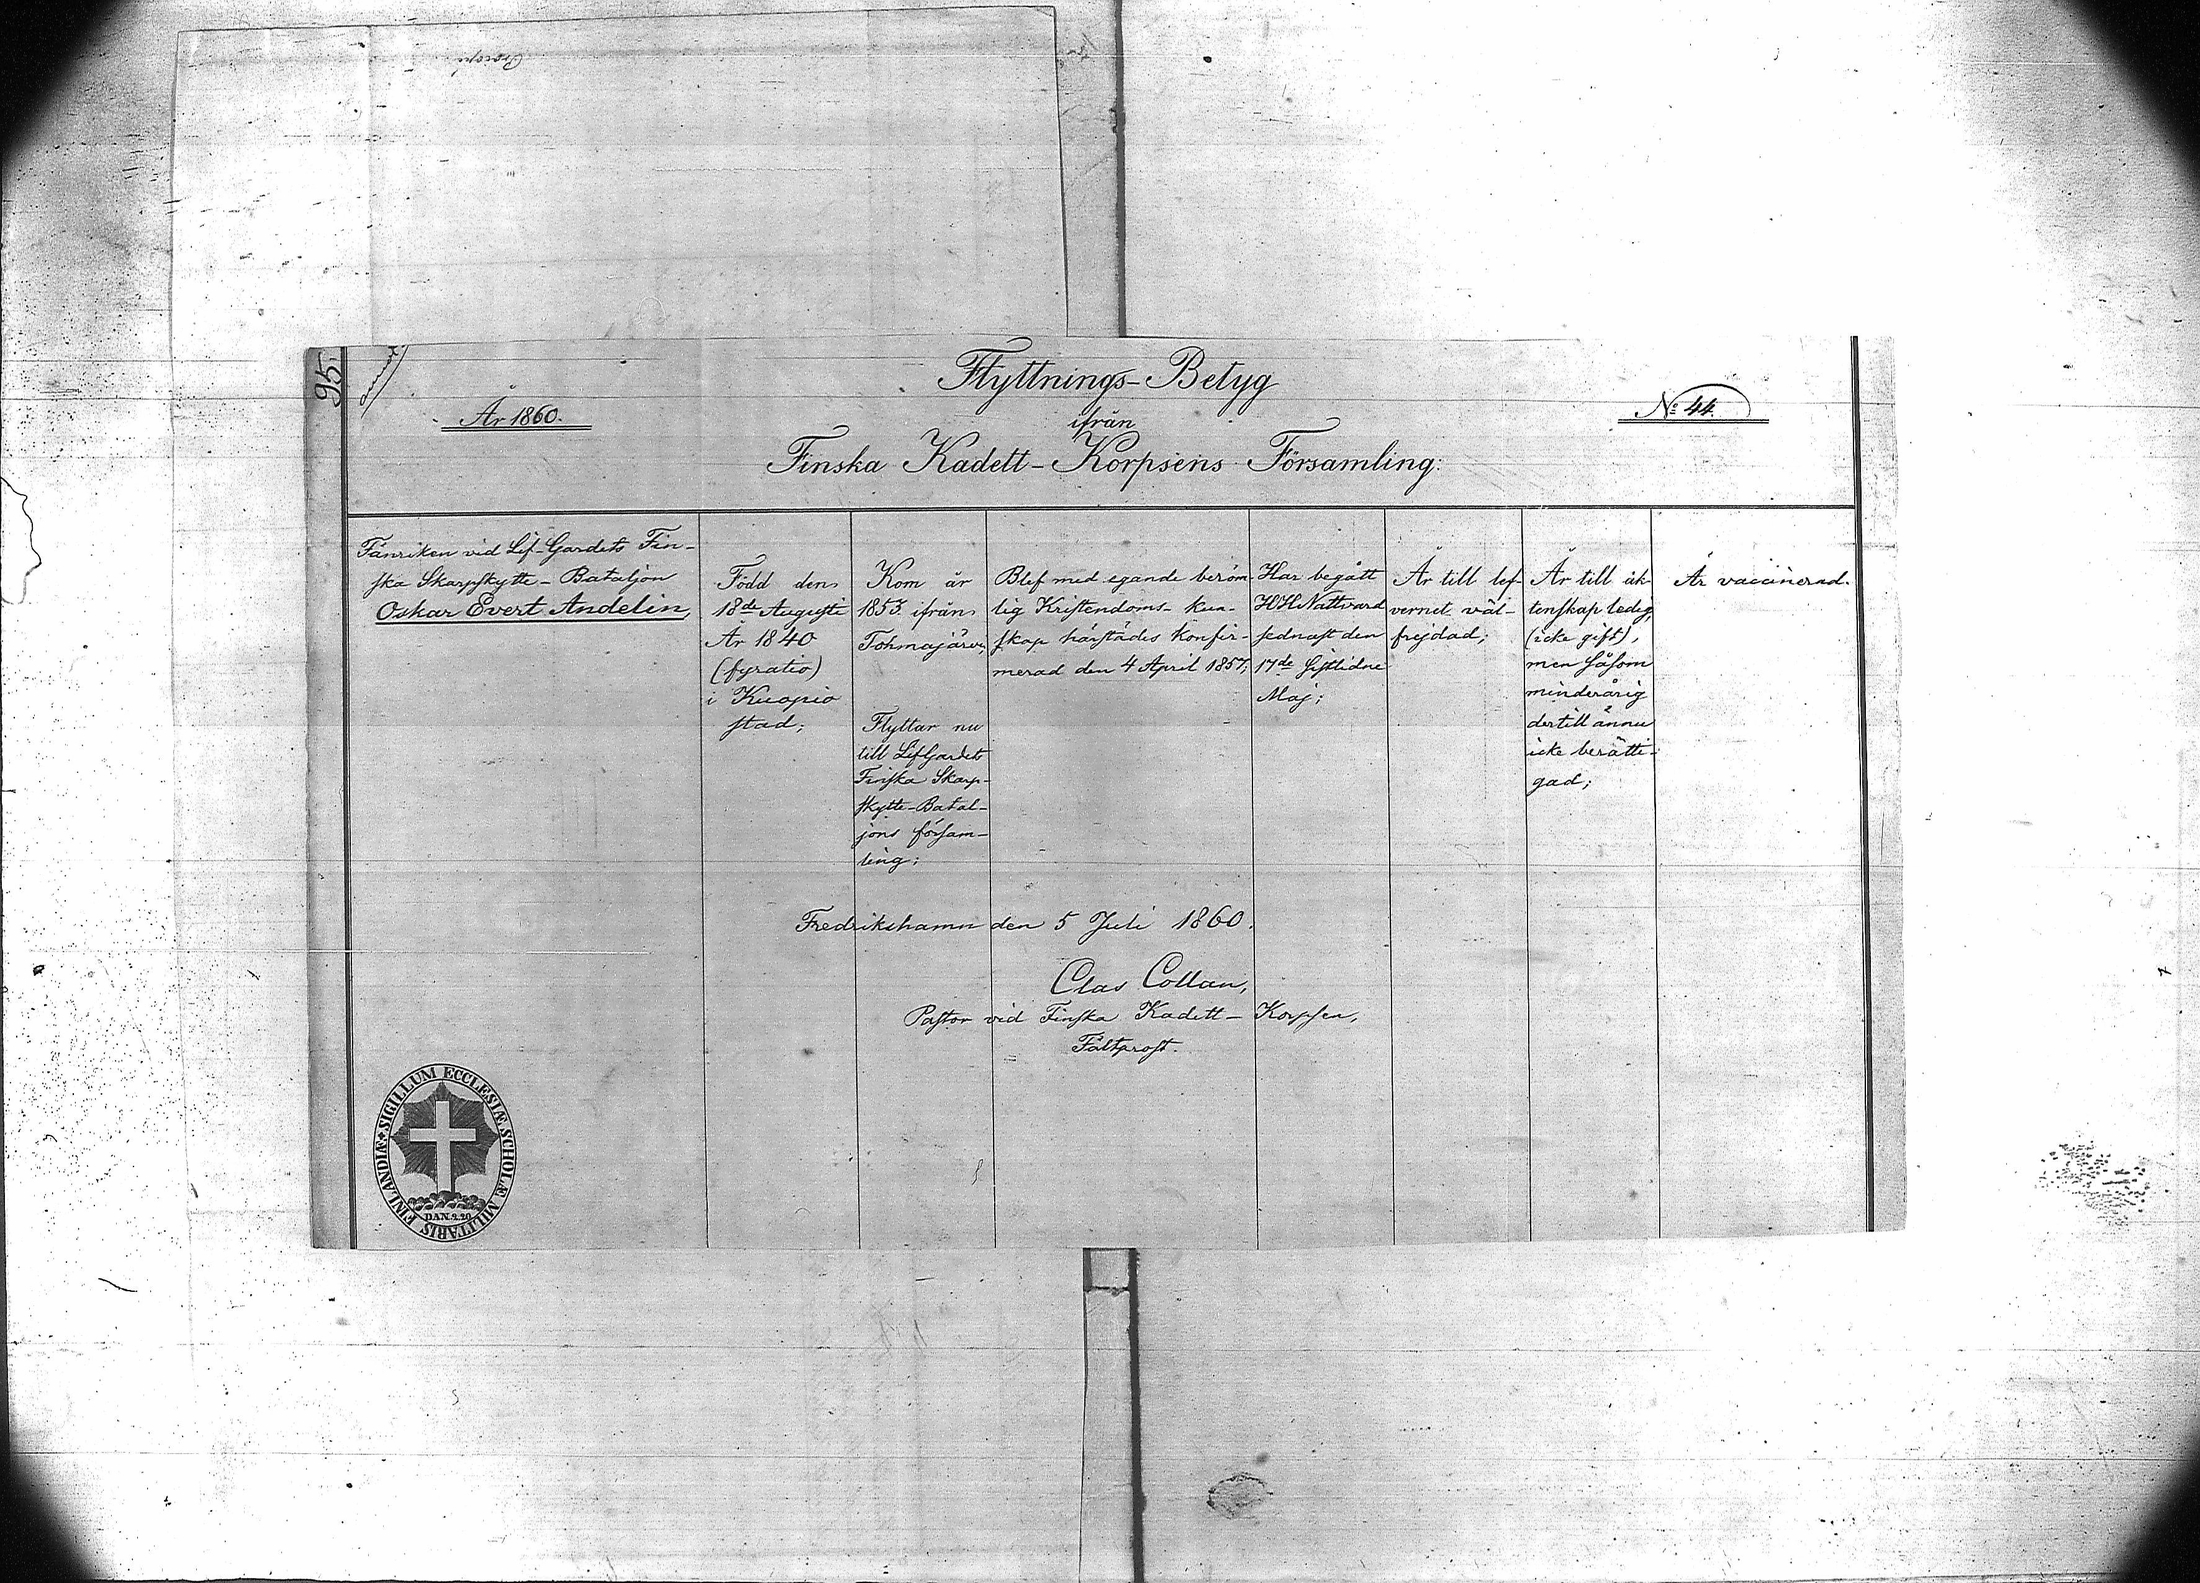 95.
År 1860.
Flyttnings-Betyg
ifrån
Finska Kadett-Korpsens Församling.
No 44.
Fänriken vid Lif-Gardets Fin-
ska Skarpskytte-Bataljon
Oskar Evert Andelin,
Född den
18de Augusti
År 1840
(fyratio)
i Kuopio
stad;
Kom år
1853 ifrån
Tohmajärvi
Flyttar nu
till LifGardets
Finska Skarp-
skytte-Batal-
jons försam-
ling;
Blef med egande beröm-
lig Kristendoms-kun-
skap härstädes Konfir-
merad den 4 April 1857;
Har begått
HHNattvard
sednast den
17de sistlidne
Maj;
Är till lef-
vernet väl-
frejdad;
Är till äk-
tenskap ledig,
(icke gift),
men såsom
minderårig
dertill ännu
icke berätti-
gad;
Är vaccinerad.
Fredrikshamn den 5 Juli 1860.
Clas Collan,
Pastor vid Finska Kadett-Korpsen,
Fältprost.
SIGILLUM ECCLESIÆ SCHOLÆ MILITARIS FINLANDIÆ
DAN. 2.20